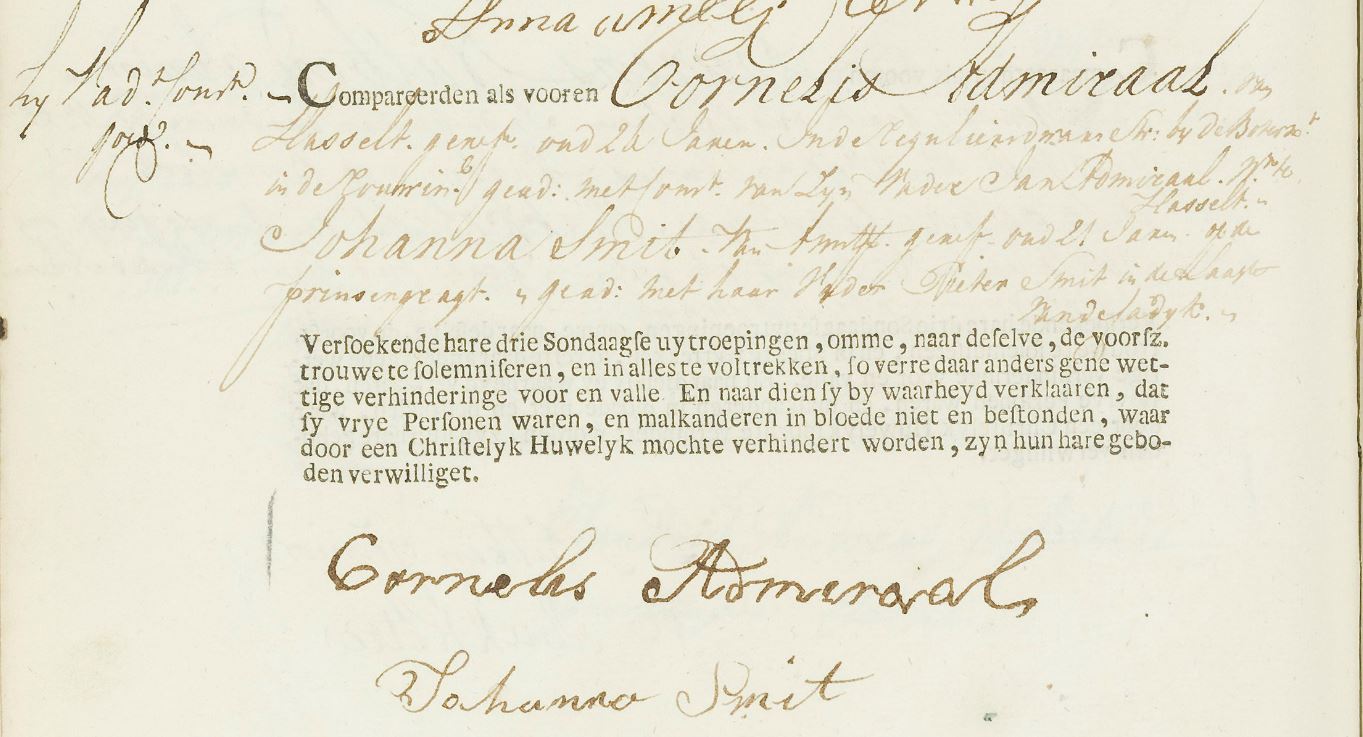 Anna
Compareerden als vooren Cornelis Admiraal. van
Hasselt. geref. oud 24 Jaren. In de Reguliersdwars Str: by de Boterm.t
in de gead: met Const. van Zyn Vader Jan Admiraal.
Hasselt.
Johanna Smit. van Amst. geref. oud 21 Jaren op de
prinsengragt. gead: met haar Vader Pieter Smit in de Plaats
Versoekende hare drie Sondaagse uytroepingen, omme, naar deselve, de voorsz.
trouwe te solemniseren, en in alles te voltrekken, so verre daar anders gene wet-
tige verhinderinge voor en valle En naar dien sy by waarheyd verklaaren, dat
sy vrye Personen waren, en malkanderen in bloede niet en bestonden, waar
door een Christelyk Huwelyk mochte verhindert worden, zyn hun hare gebo-
den verwilliget.
Cornelis Admeraal
Johanna Smit